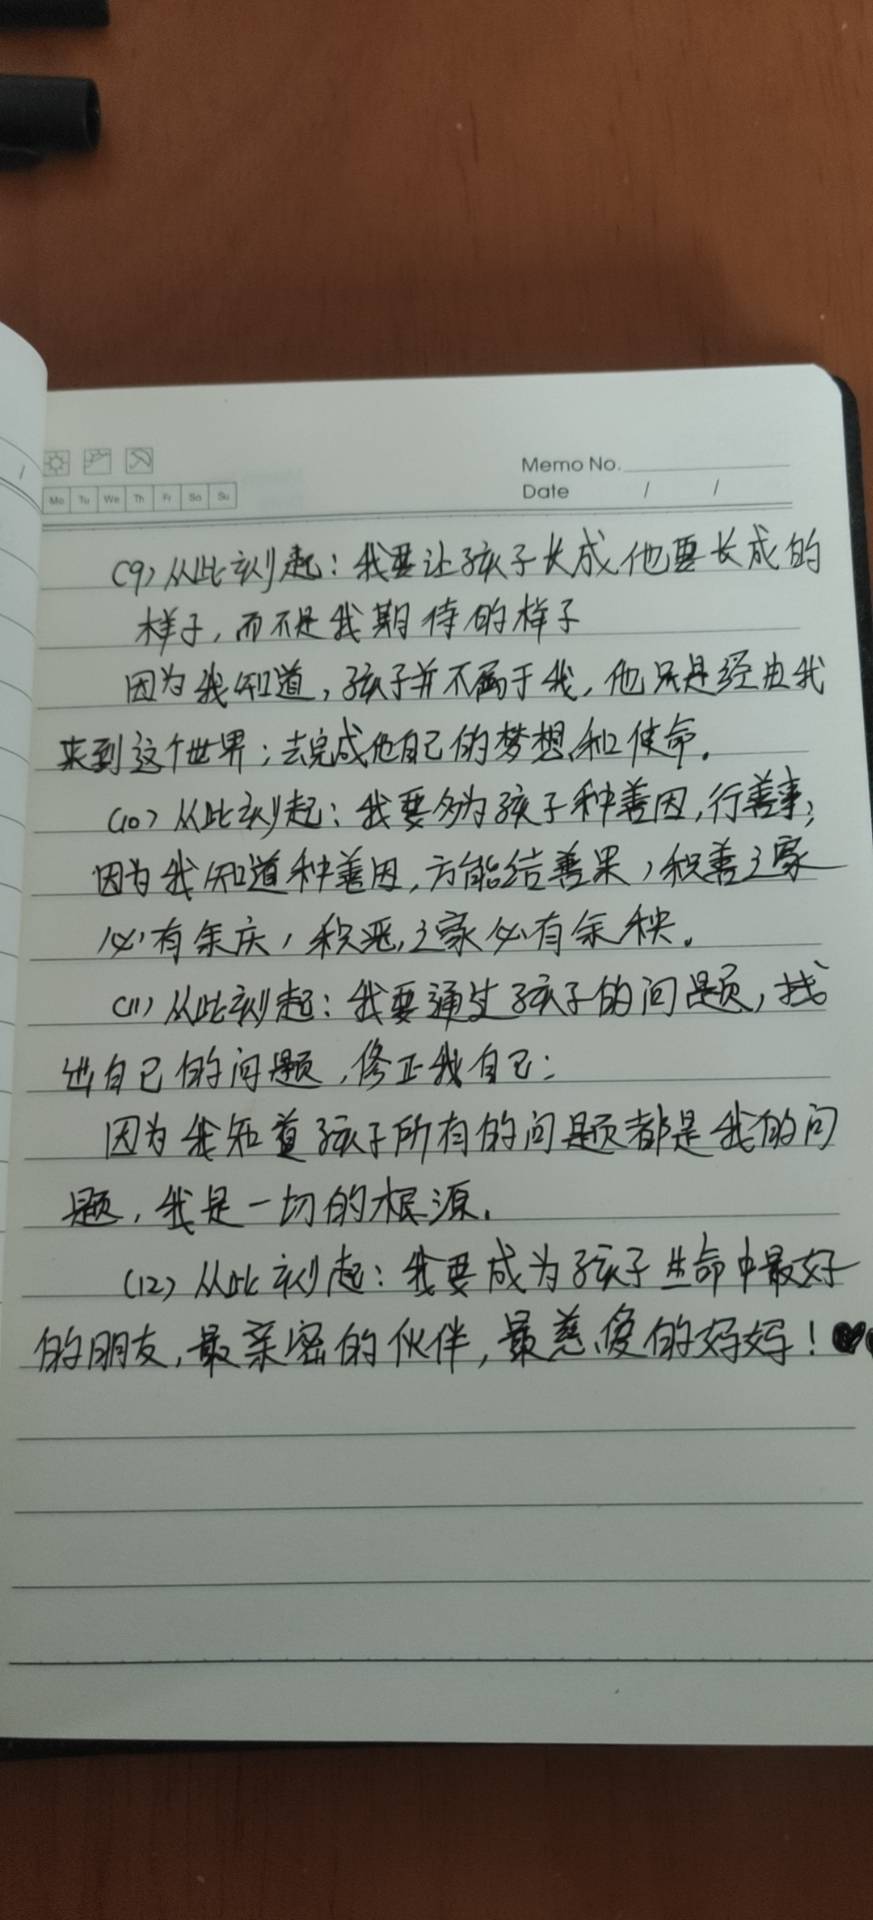 Memo No.
Mo Tu We Th Fr Sa Su
Date / /
(9) 从此刻起：我要让孩子长成他要长成的
样子，而不是我期待的样子
因为我知道，孩子并不属于我，他只是经由我
来到这个世界；去完成他自己的梦想和使命。
(10) 从此刻起：我要多为孩子种善因，行善事；
因为我知道种善因，方能结善果，积善之家
必有余庆，积恶之家必有余殃。
(11) 从此刻起：我要通过孩子的问题，找
出自己的问题，修正我自己；
因为我知道孩子所有的问题都是我的问
题，我是一切的根源。
(12) 从此刻起：我要成为孩子生命中最好
的朋友，最亲密的伙伴，最慈爱的妈妈！